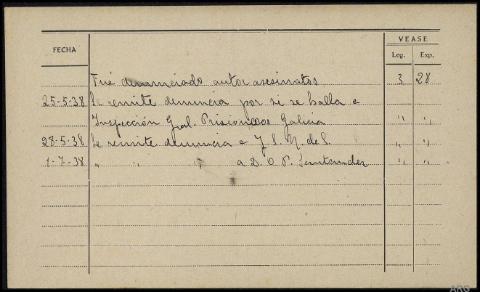 VEASE
FECHA Leg. Exp.
Fué denunciado autor asesinatos 3 28
25-5-38 Se remite denuncia por si se halla a
Inspección Gral. Prisioneros Galicia " "
28-5-38 Se remite denuncia a J. S. M. de S. " "
1-7-38 " " " a D. O. P. Santander " "
ARG